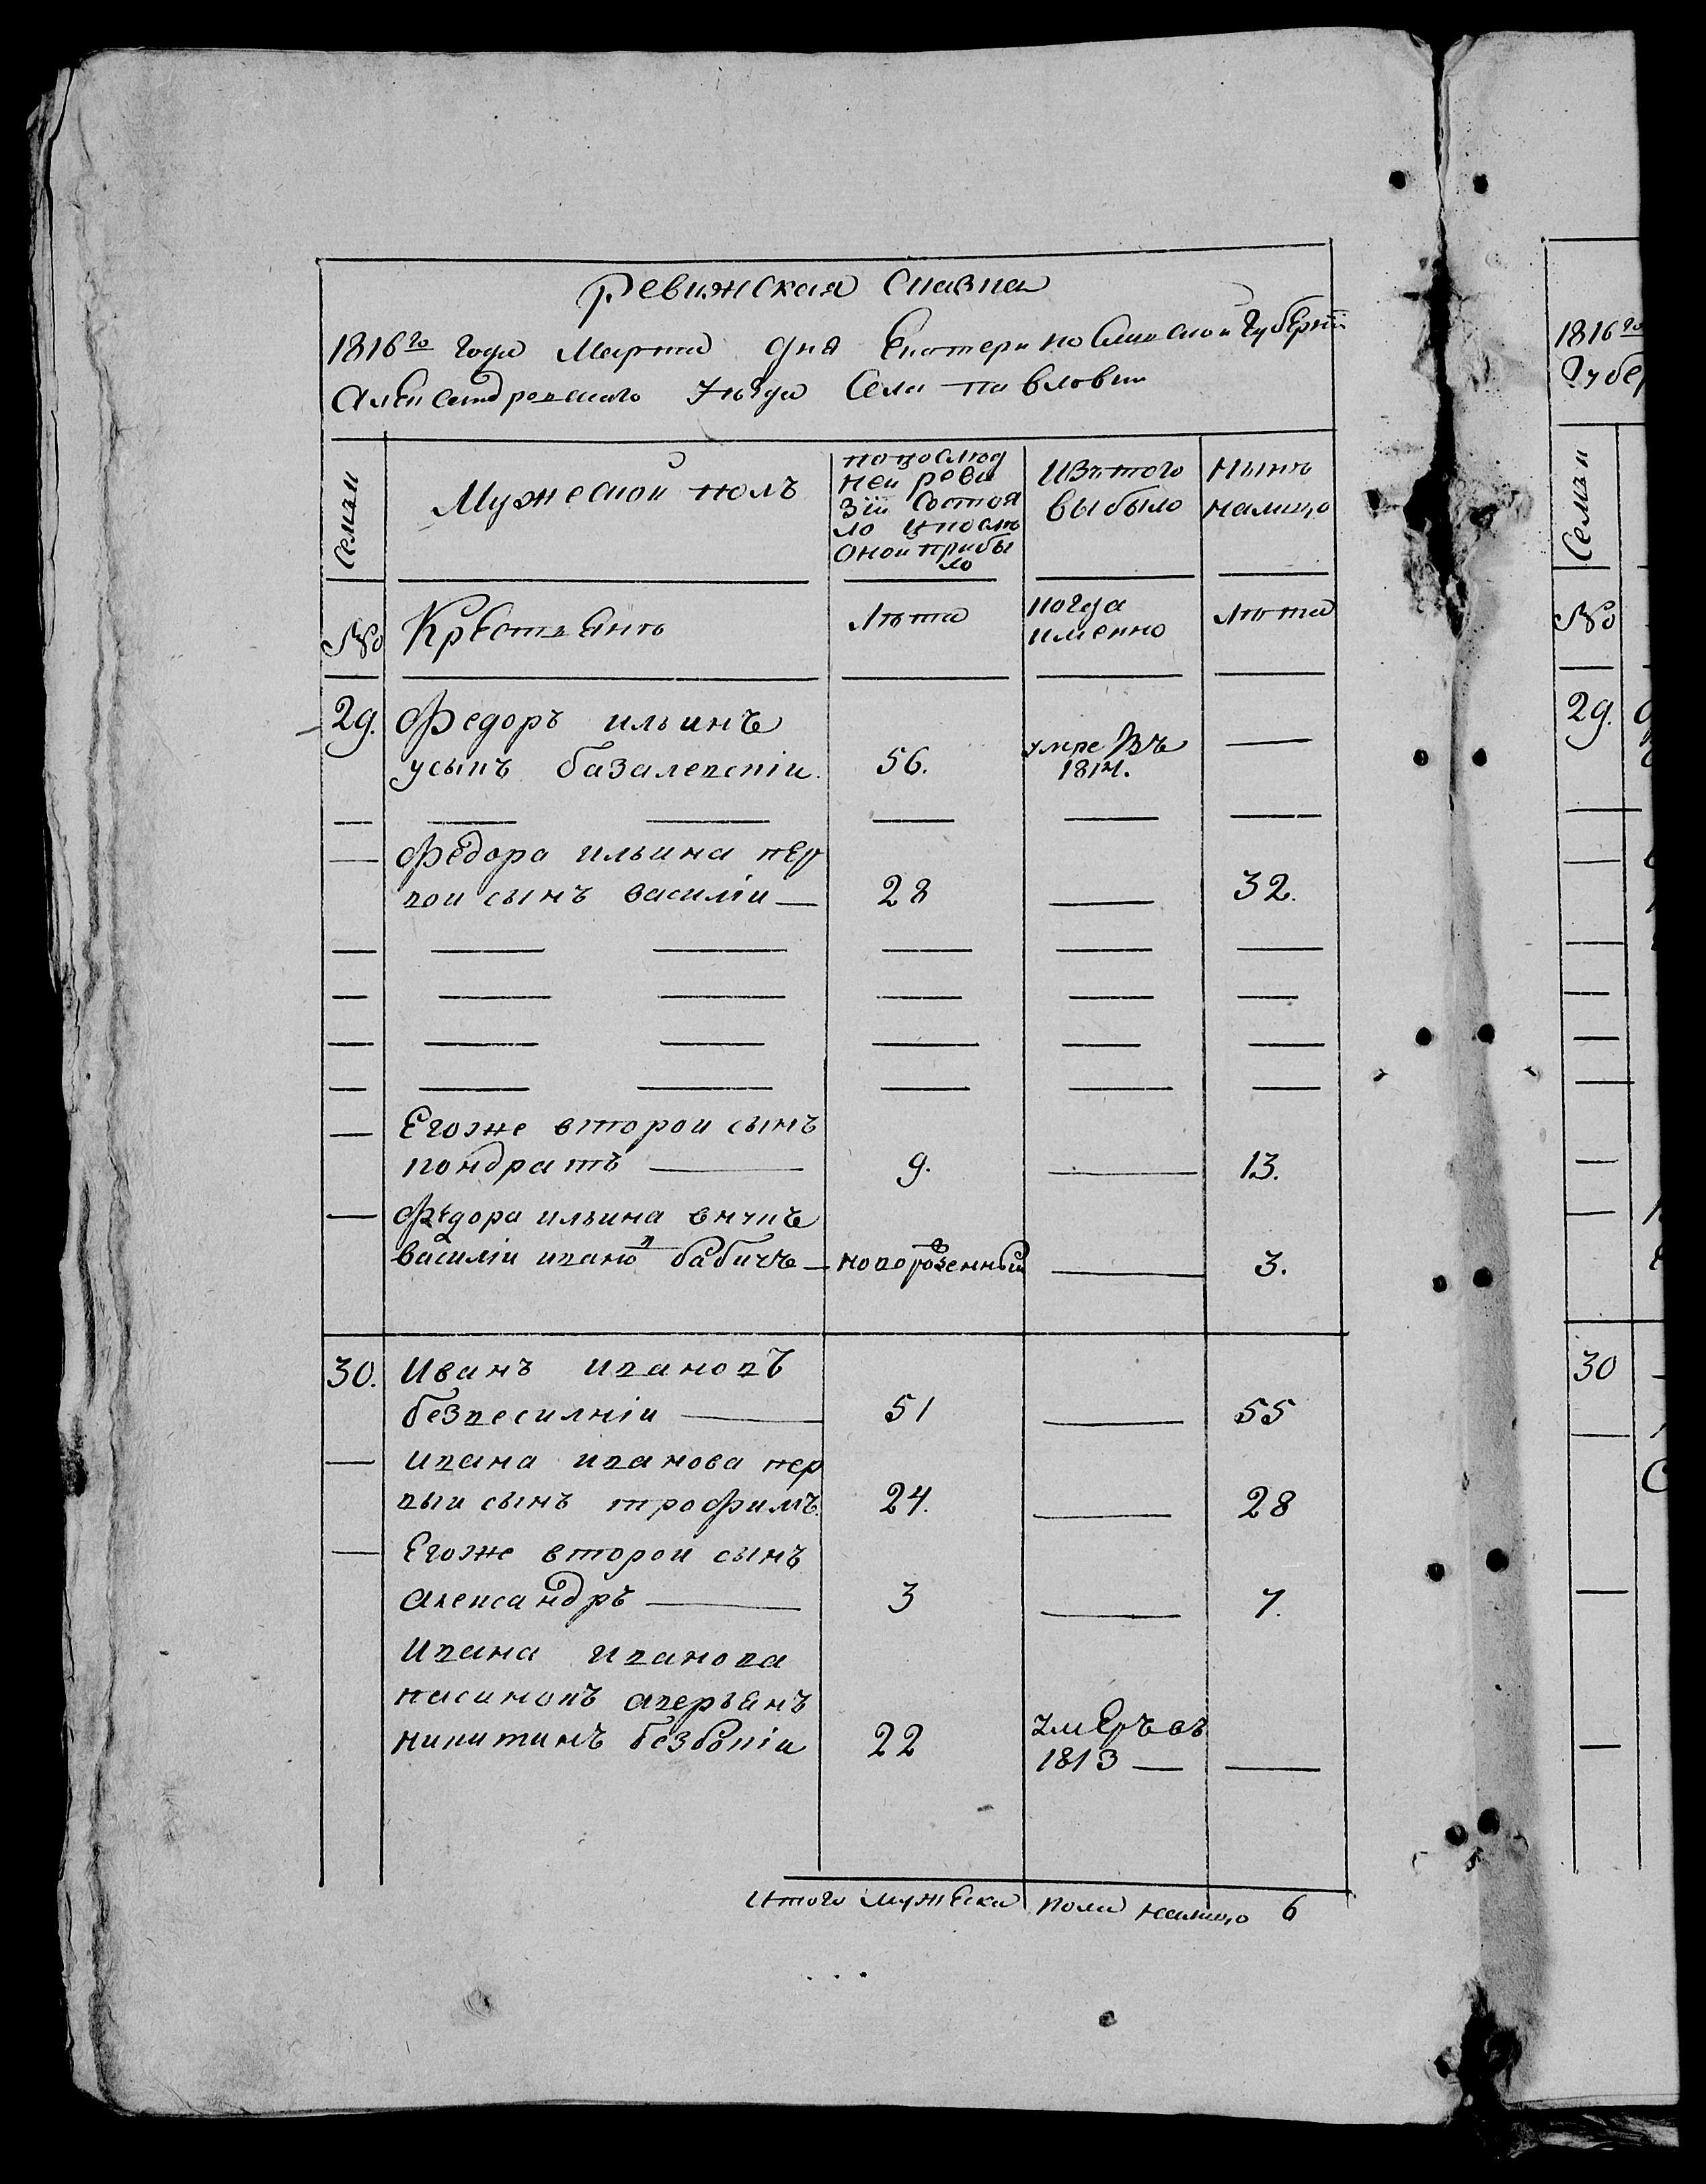 Ревижская Сказка
1816го года Марта дня Екатеринославской Губернiи
Александровскаго Уѣзда Села Павловки
Семьи
Мужеской полъ
по послѣд
ней реви
зiи Состоя
ло и послѣ
оной прибы
ло
Изъ того
выбыло
Нынѣ
налицо
№
Крестьянъ
Лѣта
когда
именно
лѣта
29. Федоръ ильинъ
56. умре Въ —
1814.
Федора ильина пер
вои сынъ василiи — 28 — 32.
Егоже второи сынъ
кондратъ — 9. — 13.
Федора ильина внукъ
василiи ивановъ бабичъ — новорожденный — 3.
30. Иванъ ивановъ
безвесилнiи — 51 — 55
ивана иванова пер
выи сынъ трофимъ 24. — 28
Егоже второи сынъ
александръ — 3 — 7.
Ивана иванова
аверьянъ
никитинъ 22 умеръ въ
1813 — —
Итого мужеска пола налицо 6
1816го
Губер
Семьи
№
29.
30